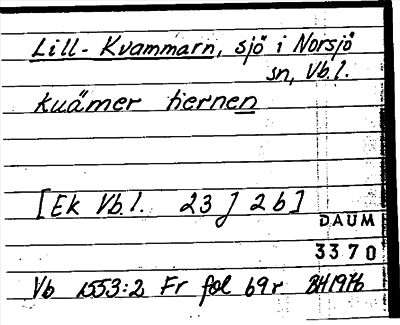 Lill-Kvammarn, sjö i Norsjö
sn, Vb.l.
kuämer tiernen
[Ek Vb.l. 23 J 2b]
DAUM
3370
Vb 1553:2 Fr fol 69r BH1976